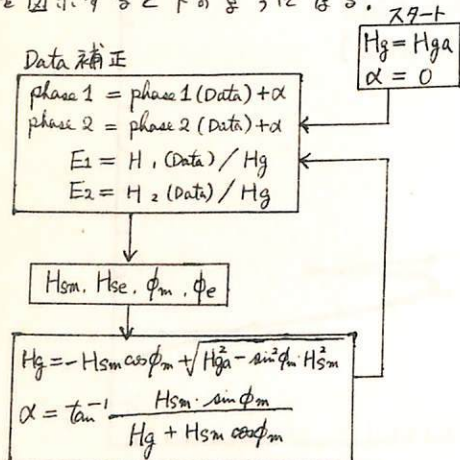 を図示すると下のようになる.
スタート
Hg = Hga
α = 0
Data 補正
phase 1 = phase 1 (Data) + α
phase 2 = phase 2 (Data) + α
E1 = H 1 (Data) / Hg
E2 = H 2 (Data) / Hg
Hsm, Hse, ϕm, ϕe
Hg = -Hsm cosϕm + √Hga² - sin²ϕm·Hsm²
α = tan⁻¹ Hsm·sinϕm / Hg + Hsm cosϕm